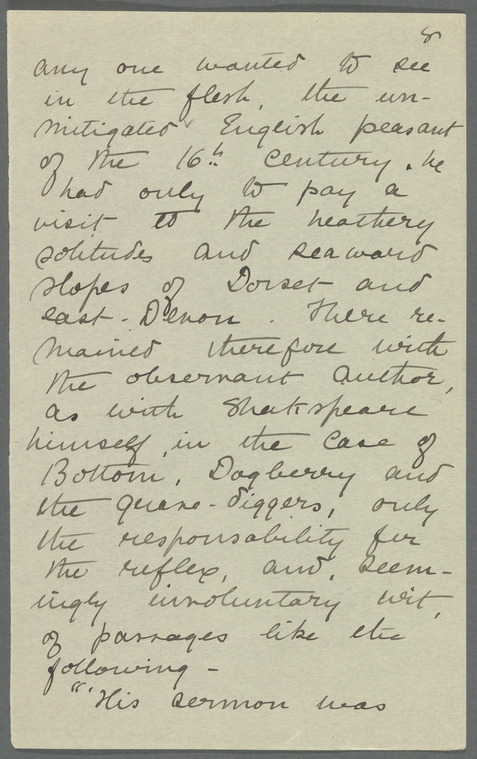 8
any one wanted to see
in the flesh, the un-
mitigated English peasant
of the 16th century, he
had only to pay a
visit to the heathery
solitudes and seaward
slopes of Dorset and
east-Devon. There re-
mained therefore with
the observant author,
as with Shakspeare
himself, in the case of
Bottom, Dogberry and
the grave-diggers, only
the responsability for
the reflex, and, seem-
ingly involuntary wit,
of passages like the
following -
"'His sermon was